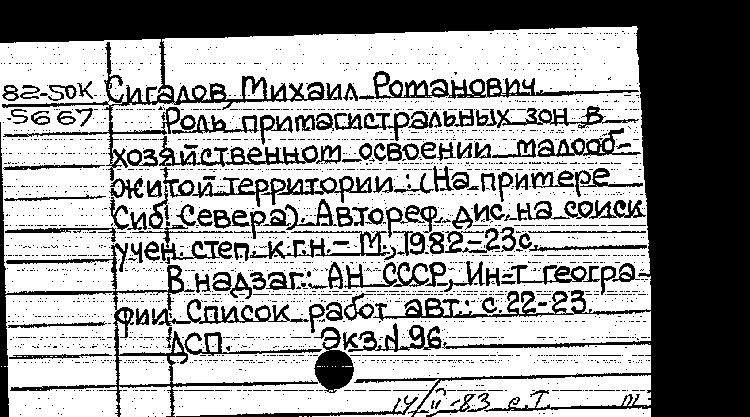 82-50К Сигалов, Михаил Романович.
5667 Роль примагистральных зон в
хозяйственном освоении малооб-
житой территории : (На примере
Сиб. Севера). Автореф. дис. на соиск.
учен. степ. к.г.н. - М., 1982 - 23с.
В надзаг.: АН СССР, Ин-т геогра-
фии. Список работ авт.: с. 22-23.
ДСП. Экз. N 96.
14/II-83 е.Т. т